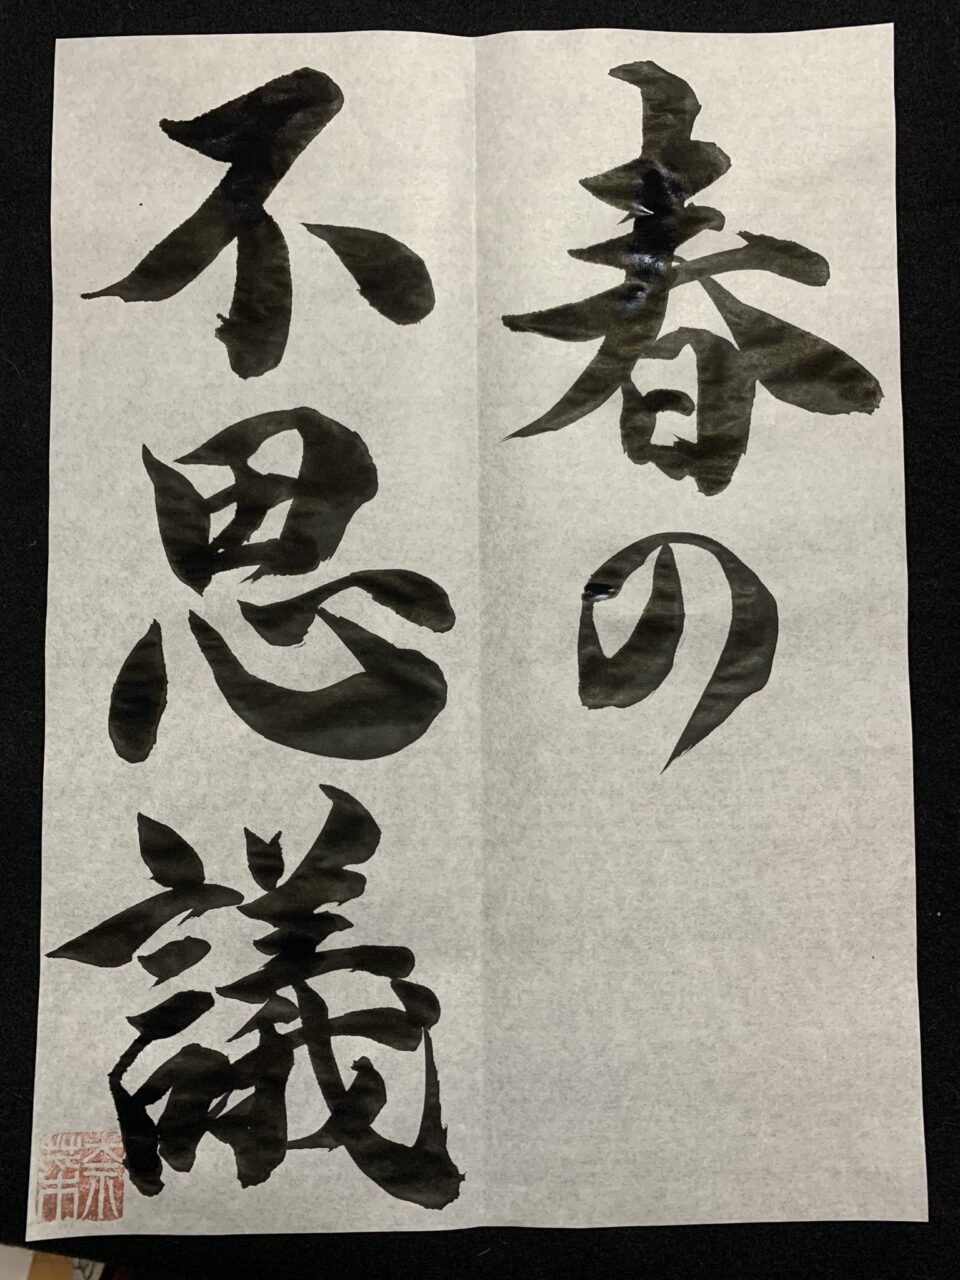 春の
不思議